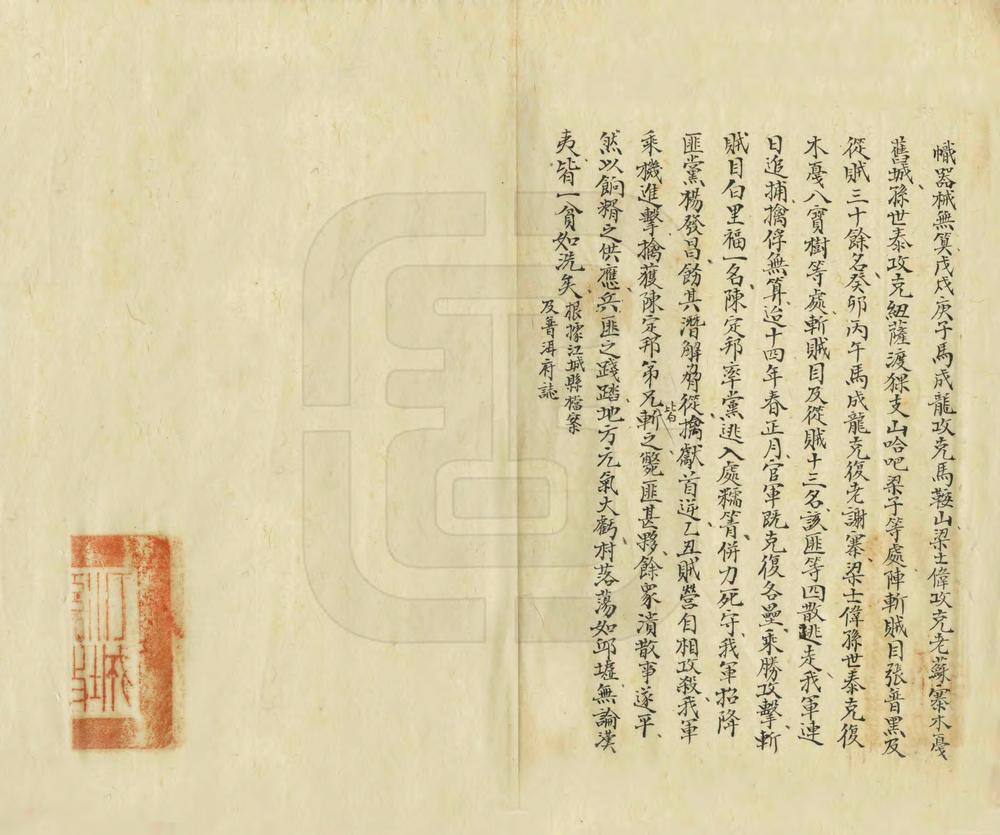 幟器械無算戊戌庚子馬成龍攻克馬鞍山梁士偉攻克老蘇寨木戞
舊城孫世泰攻克紐薩渡猓支山哈吧梁子等處陣斬賊目張普黑及
從賊三十餘名癸卯丙午馬成龍克復老謝寨梁士偉孫世泰克復
木戞八寶樹等處斬賊目及從賊十三名該匪等四散逃走我軍連
日追捕擒俘無算迨十四年春正月官軍既克復各壘乘勝攻擊斬
賊目白里福一名陳定邦率黨逃入處糯箐併力死守我軍招降
匪黨楊發昌飭其潛解脅從擒獻首逆乙丑賊營自相攻殺我軍
乘機進擊擒獲陳定邦弟兄皆斬之斃匪甚夥餘眾潰散事遂平
然以餉糈之供應兵匪之踐踏地方元氣大虧村落蕩如邱墟無論漢
夷皆一貧如洗矣
根據江城縣檔案
及普洱府誌